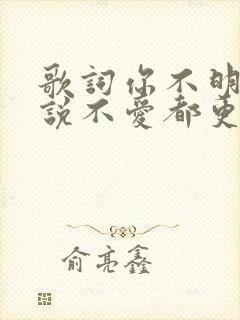 歌詞你不明
說不愛都更
俞亮鑫